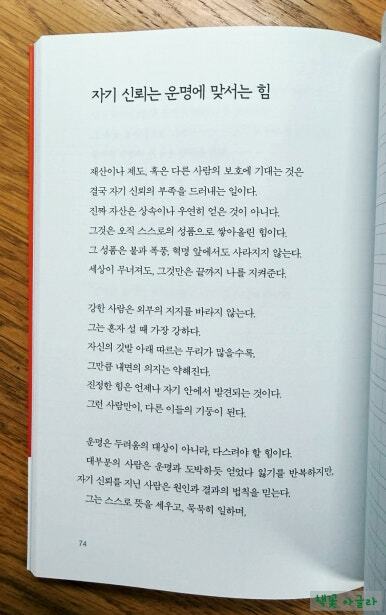 자기 신뢰는 운명에 맞서는 힘
재산이나 제도, 혹은 다른 사람의 보호에 기대는 것은
결국 자기 신뢰의 부족을 드러내는 일이다.
진짜 자산은 상속이나 우연히 얻은 것이 아니다.
그것은 오직 스스로의 성품으로 쌓아올린 힘이다.
그 성품은 불과 폭풍, 혁명 앞에서도 사라지지 않는다.
세상이 무너져도, 그것만은 끝까지 나를 지켜준다.
강한 사람은 외부의 지지를 바라지 않는다.
그는 혼자 설 때 가장 강하다.
자신의 깃발 아래 따르는 무리가 많을수록,
그만큼 내면의 의지는 약해진다.
진정한 힘은 언제나 자기 안에서 발견되는 것이다.
그런 사람만이, 다른 이들의 기둥이 된다.
운명은 두려움의 대상이 아니라, 다스려야 할 힘이다.
대부분의 사람은 운명과 도박하듯 얻었다 잃기를 반복하지만,
자기 신뢰를 지닌 사람은 원인과 결과의 법칙을 믿는다.
그는 스스로 뜻을 세우고, 묵묵히 일하며,
74
책꽃 아글라